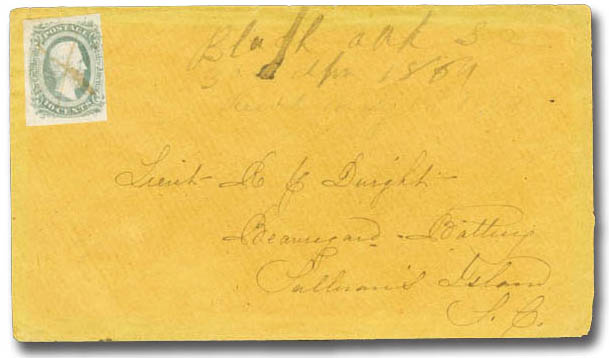 POSTAGE
10 CENTS
Black oak S
1864
Lieut R C Dwight
Beauregard Battery
Sullivan's Island
S. C.